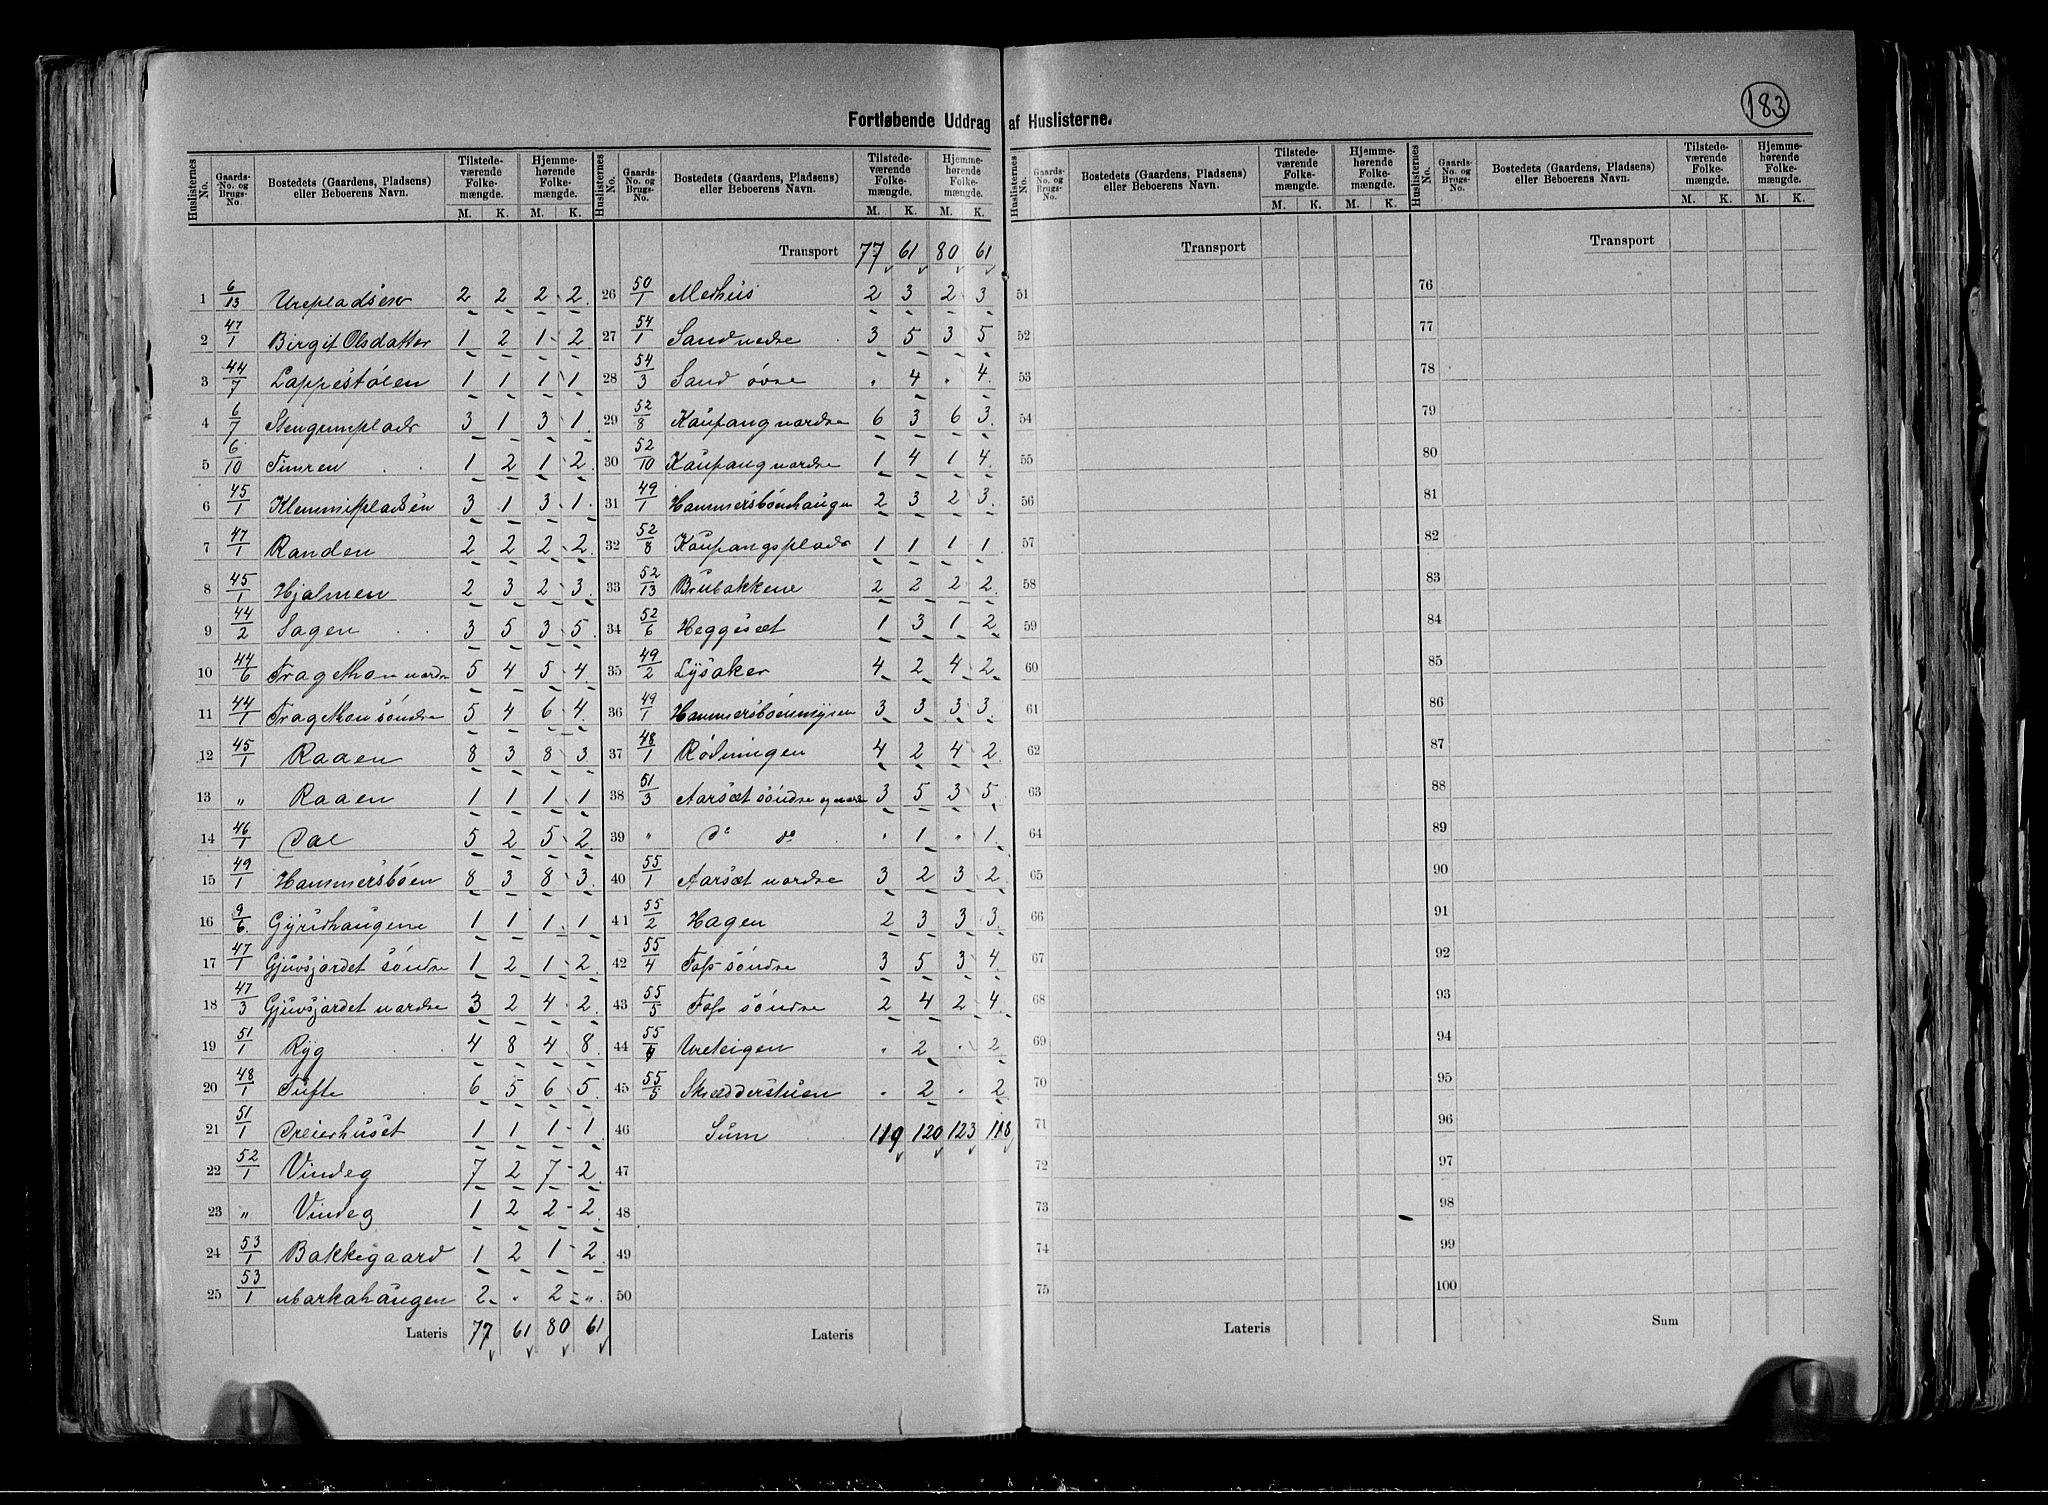 183
Fortløbende Uddrag af Huslisterne.
Huslisternes No. | Gaards-No. og Brugs-No. | Bostedets (Gaardens, Pladsens) eller Beboerens Navn. | Tilstedeværende Folkemængde. M. K. | Hjemmehørende Folkemængde. M. K.
1 6/13 Urepladsen 2 2 2 2
2 47/1 Birgit Olsdatter 1 2 1 2
3 44/7 Lappestølen 1 1 1 1
4 6/7 Stengrimplads 3 1 3 1
5 6/10 Timren 1 2 1 2
6 45/1 Klemmitpladsen 3 1 3 1
7 47/1 Randen 2 2 2 2
8 45/1 Hjalmen 2 3 2 3
9 44/2 Sagen 3 5 3 5
10 44/6 Tragethon nordre 5 4 5 4
11 44/1 Tragethon söndre 5 4 6 4
12 45/1 Raaen 8 3 8 3
13 " Raaen 1 1 1 1
14 46/1 Dal 5 2 5 2
15 49/1 Hammersbøen 8 3 8 3
16 9/6 Gyridhaugene 1 1 1 1
17 47/1 Gjuvsjordet söndre 1 2 1 2
18 47/3 Gjuvsjordet nordre 3 2 4 2
19 51/1 Ryg 4 8 4 8
20 48/1 Tufte 6 5 6 5
21 51/1 Dreierhuset 1 1 1 1
22 52/1 Vindeg 7 2 7 2
23 " Vindeg 1 2 2 2
24 53/1 Bakkegaard 1 2 1 2
25 53/1 Markahaugen 2 " 2 "
Lateris 77 61 80 61
Huslisternes No. | Gaards-No. og Brugs-No. | Bostedets (Gaardens, Pladsens) eller Beboerens Navn. | Tilstedeværende Folkemængde. M. K. | Hjemmehørende Folkemængde. M. K.
Transport 77 61 80 61
26 50/1 Methus 2 3 2 3
27 54/1 Sand nedre 3 5 3 5
28 54/3 Sand øvre " 4 " 4
29 52/8 Kaupang nordre 6 3 6 3
30 52/10 Kaupang nordre 1 4 1 4
31 49/1 Hammersbönhaugen 2 3 2 3
32 52/8 Kaupangsplads 1 1 1 1
33 52/13 Brubakkene 2 2 2 2
34 52/6 Heggesæt 1 3 1 2
35 49/2 Lysaker 4 2 4 2
36 49/1 Hammersböenmyren 3 3 3 3
37 48/1 Rødningen 4 2 4 2
38 51/3 Aarsæt söndre og nordre 3 5 3 5
39 " Do do " 1 " 1
40 55/1 Aarsæt nordre 3 2 3 2
41 55/2 Hagen 2 3 3 3
42 55/4 Foss söndre 3 5 3 4
43 55/5 Foss söndre 2 4 2 4
44 55/4 Ureteigen " 2 " 2
45 55/5 Skrædderstuen " 2 " 2
46 Sum 119 120 123 118
47
48
49
50
Lateris
Huslisternes No. | Gaards-No. og Brugs-No. | Bostedets (Gaardens, Pladsens) eller Beboerens Navn. | Tilstedeværende Folkemængde. M. K. | Hjemmehørende Folkemængde. M. K.
Transport
51
52
53
54
55
56
57
58
59
60
61
62
63
64
65
66
67
68
69
70
71
72
73
74
75
Lateris
Huslisternes No. | Gaards-No. og Brugs-No. | Bostedets (Gaardens, Pladsens) eller Beboerens Navn. | Tilstedeværende Folkemængde. M. K. | Hjemmehørende Folkemængde. M. K.
Transport
76
77
78
79
80
81
82
83
84
85
86
87
88
89
90
91
92
93
94
95
96
97
98
99
100
Sum